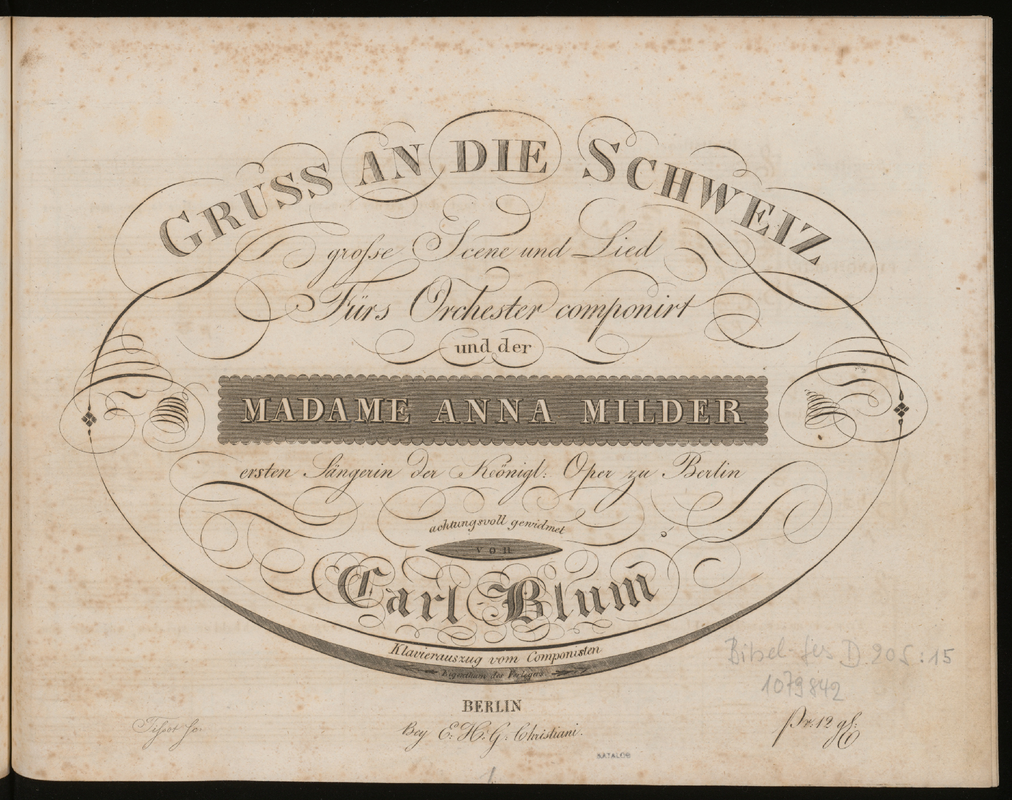 GRUSS AN DIE SCHWEIZ
große Scene und Lied
Fürs Orchester componirt
und der
MADAME ANNA MILDER
ersten Sängerin der Königl: Oper zu Berlin
achtungsvoll gewidmet
von
Carl Blum
Klavierauszug vom Componisten
Eigenthum des Verlegers
BERLIN
Bey E. H. G. Christiani.
Pr. 12 gl:
D. 205:15
1079842
KATALOG